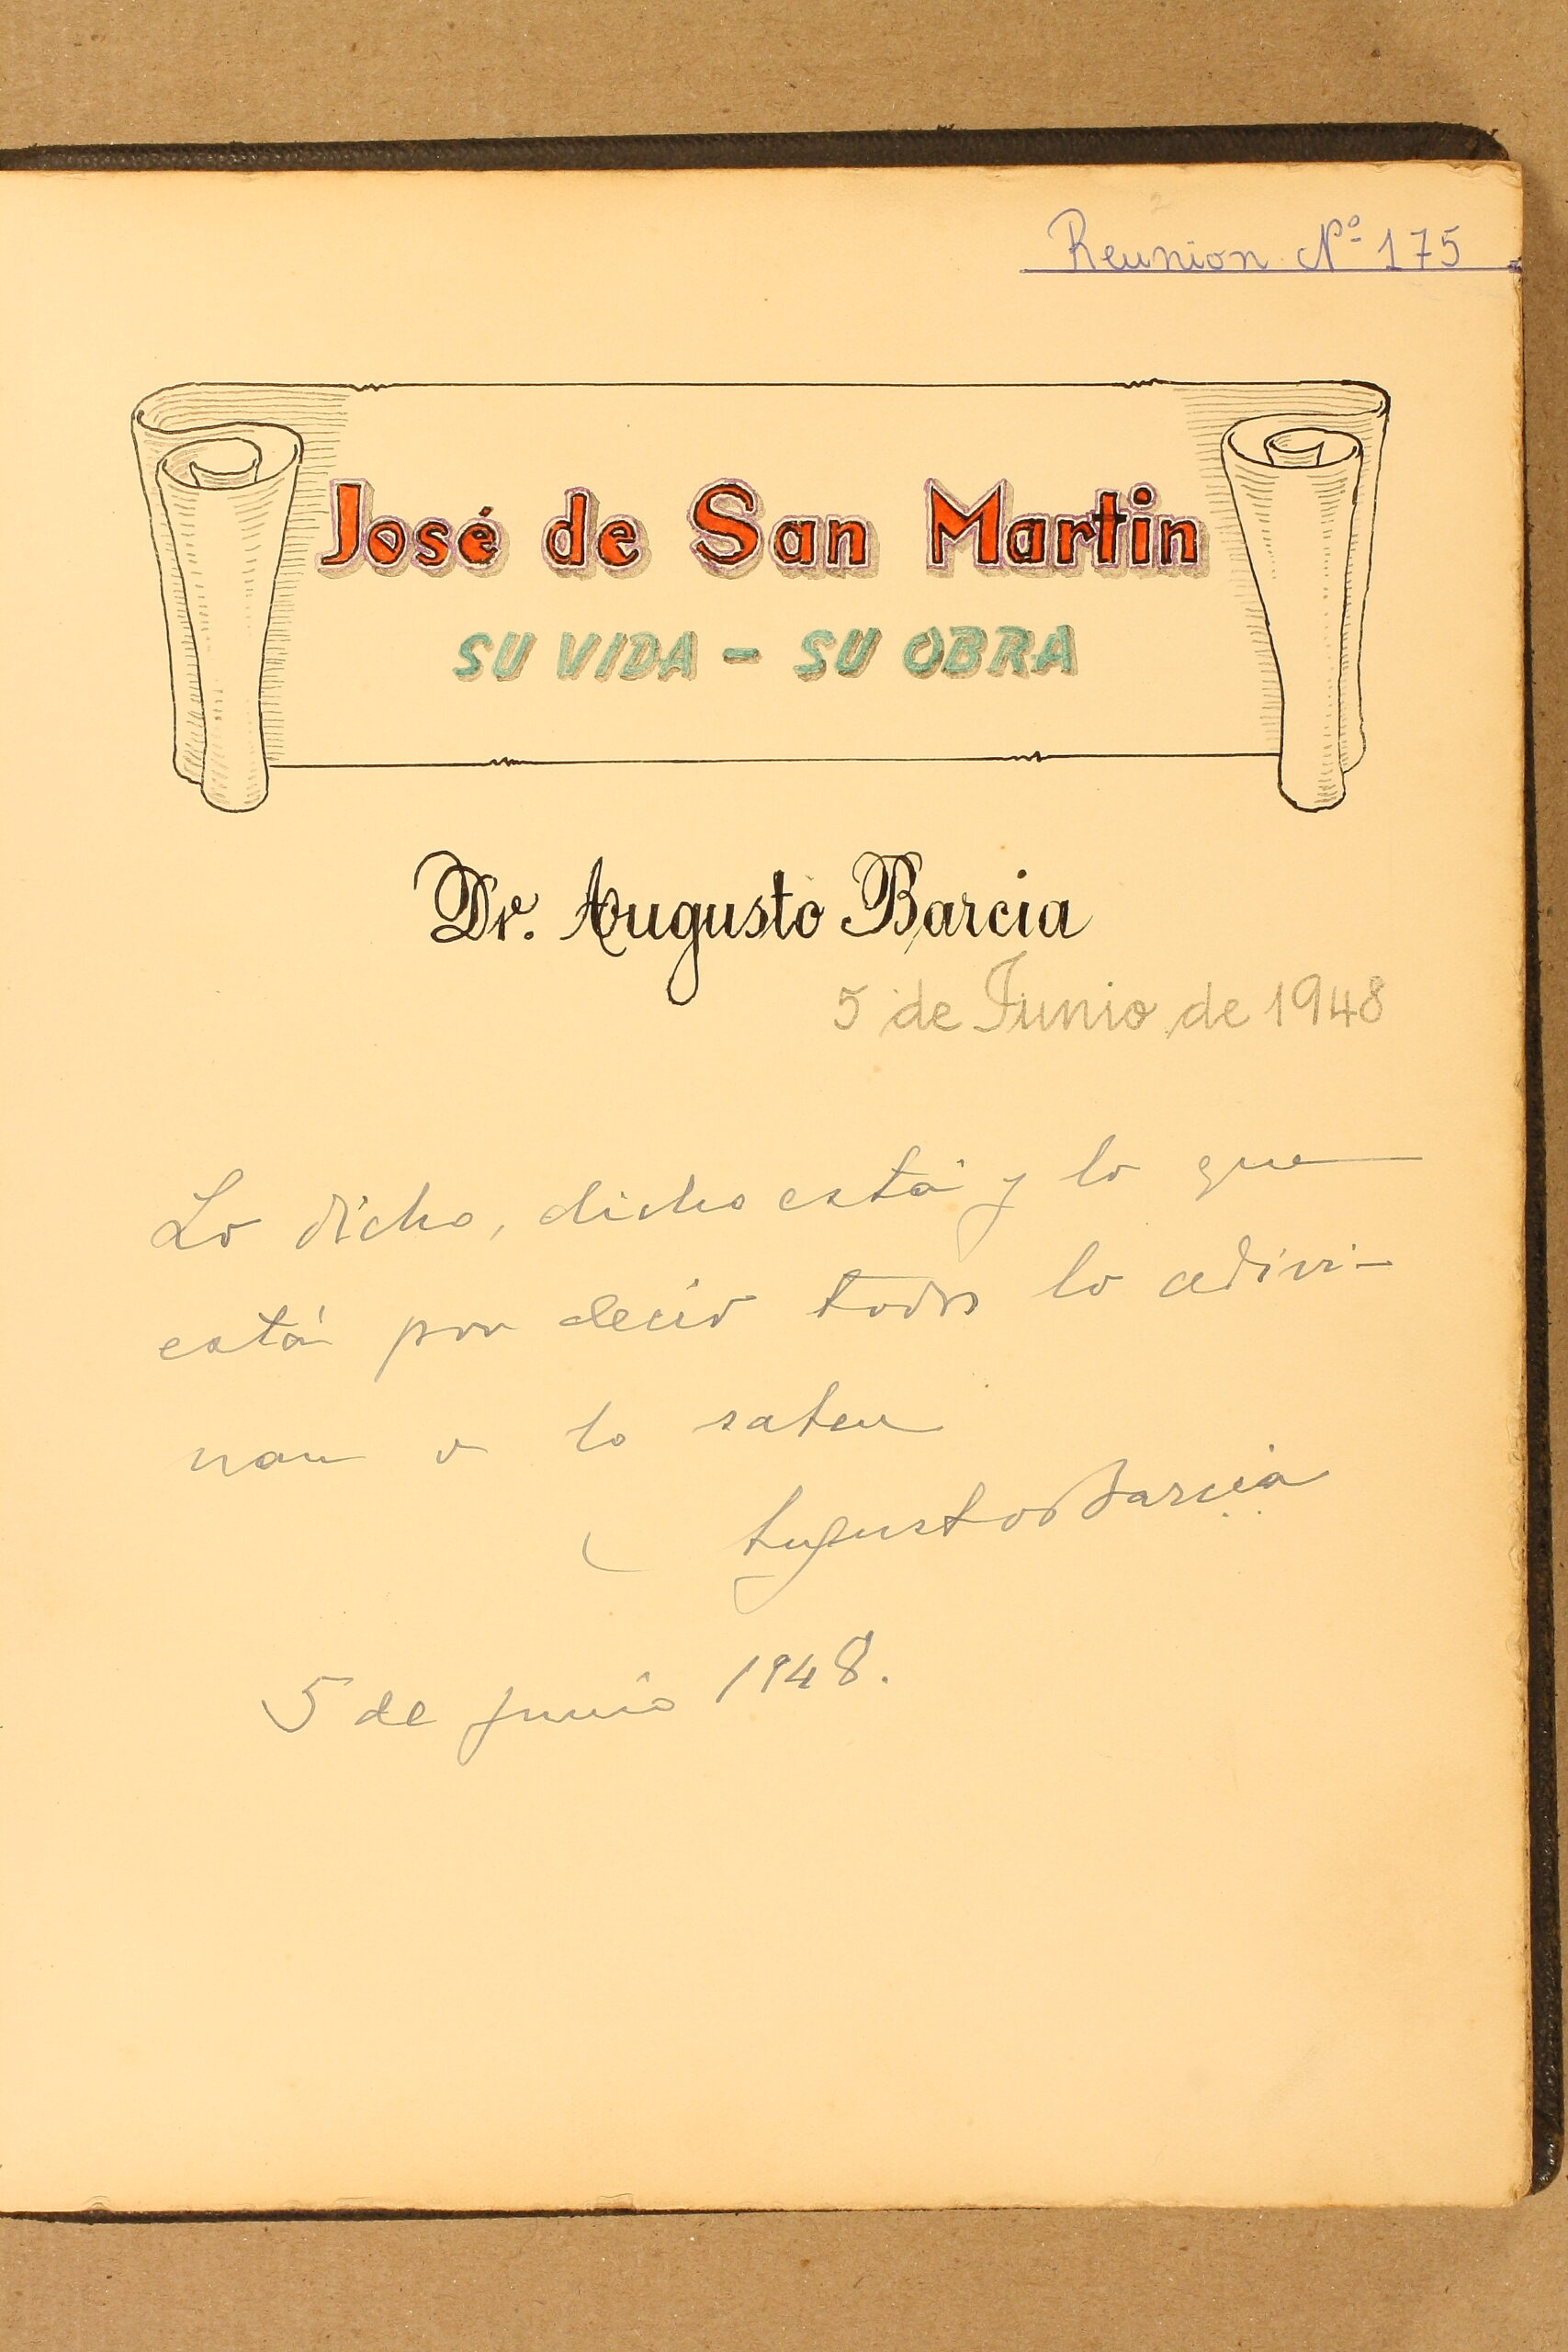 Reunion Nº 175
José de San Martin
SU VIDA - SU OBRA
Dr. Augusto Barcia
5 de Junio de 1948
Lo dicho, dicho está y lo que
está por decir todos lo adivi-
nan o lo saben
Augusto Barcia
5 de junio 1948.